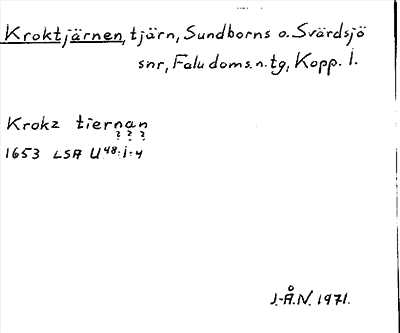 Kroktjärnen, tjärn, Sundborns o. Svärdsjö
snr, Falu doms.n.tg, Kopp. l.
Krokz tiernan
? ? ?
1653 LSA U48:i:4
J.-Å.N. 1971.